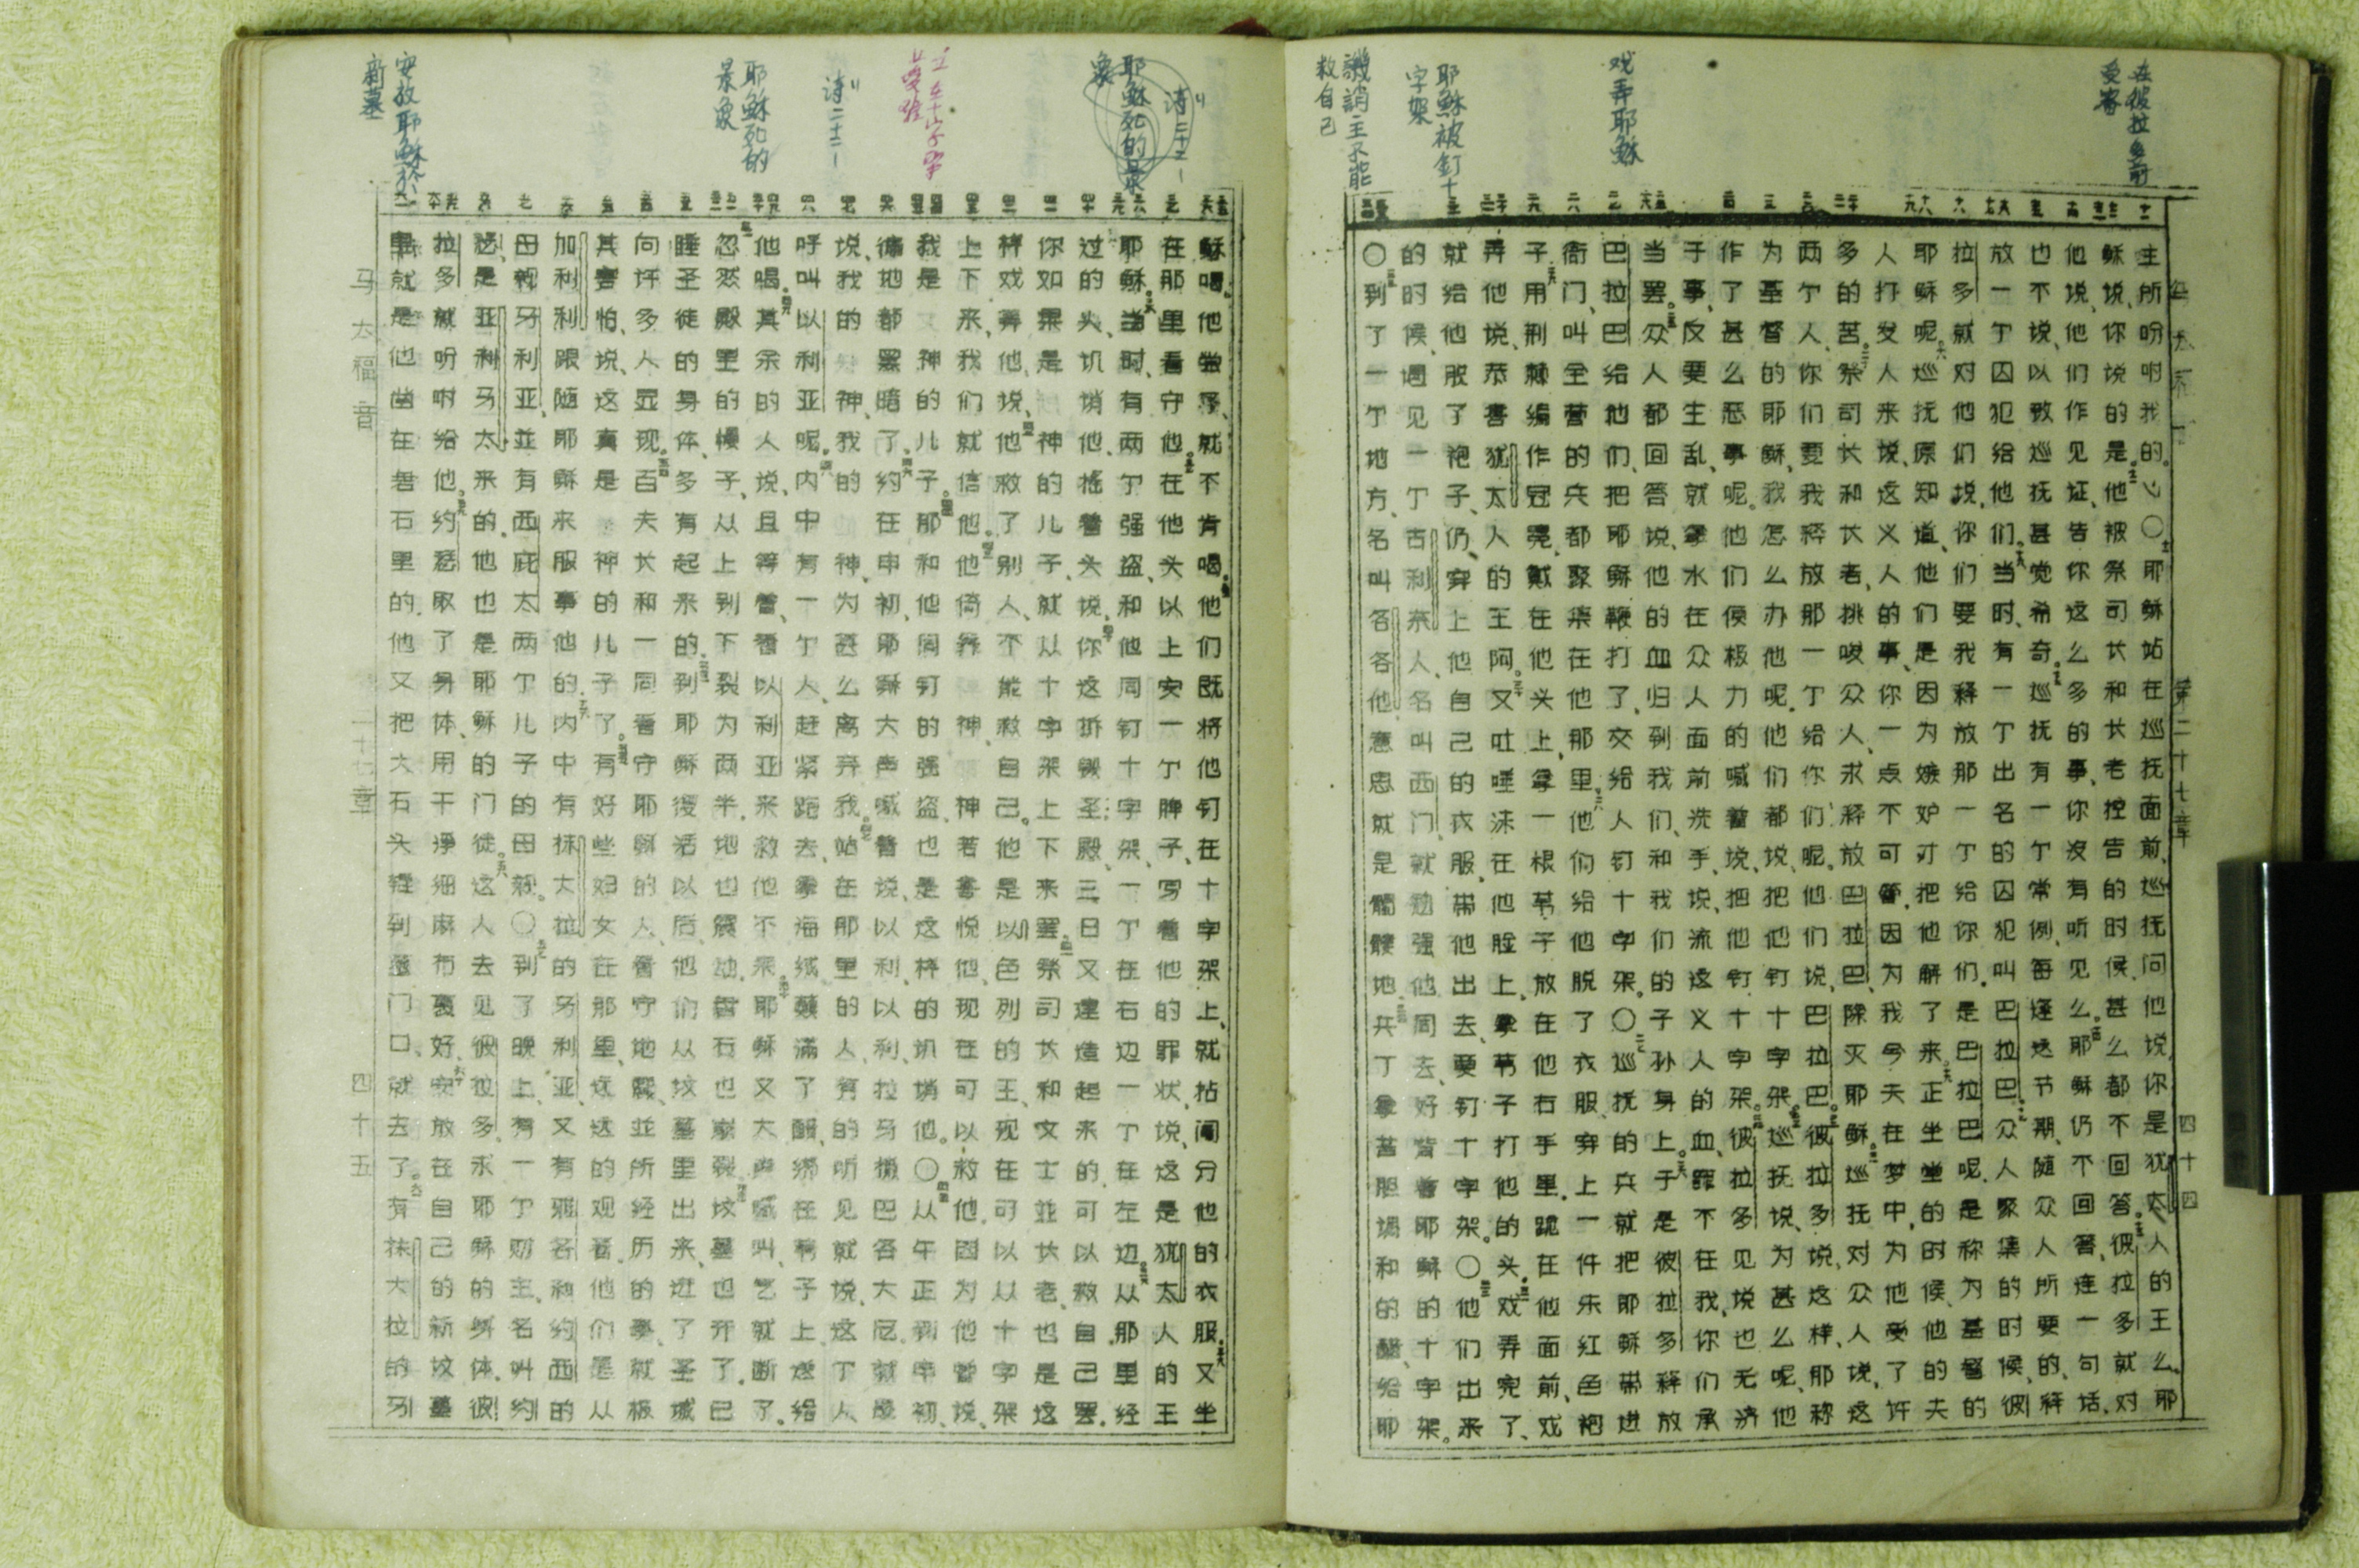 在彼拉多前
受審
戏弄耶稣
耶稣被釘十
字架
譏誚主不能
救自己
马太福音
第二十七章
四十四
主所吩咐我的。〇耶稣站在巡抚面前、巡抚问他说、你是犹太人的王么。耶
稣说、你说的是。他被祭司长和长老控告的时候、甚么都不回答。彼拉多就对
他说、他们作见证告你这么多的事、你没有听见么。耶稣仍不回答、连一句话、
也不说、以致巡抚甚觉希奇。巡抚有一个常例、每逢这节期、随众人所要的、释
放一个囚犯给他们。当时、有一个出名的囚犯叫巴拉巴。众人聚集的时候、彼
拉多就对他们说、你们要我释放那一个给你们、是巴拉巴呢、是称为基督的
耶稣呢。巡抚原知道、他们是因为嫉妒才把他解了来。正坐堂的时候、他的夫
人打发人来说、这义人的事、你一点不可管、因为我今天在梦中、为他受了许
多的苦。祭司长和长老、挑唆众人、求释放巴拉巴、除灭耶稣。巡抚对众人说、这
两个人、你们要我释放那一个给你们呢。他们说、巴拉巴。彼拉多说、这样、那称
为基督的耶稣、我怎么办他呢。他们都说、把他钉十字架。巡抚说、为甚么呢、他
作了甚么恶事呢。他们便极力的喊着说、把他钉十字架。彼拉多见说也无济
于事、反要生乱、就拿水在众人面前洗手、说、流这义人的血、罪不在我、你们承
当罢。众人都回答说、他的血归到我们、和我们的子孙身上。于是彼拉多释放
巴拉巴给他们、把耶稣鞭打了、交给人钉十字架。〇巡抚的兵就把耶稣带进
衙门、叫全营的兵都聚集在他那里。他们给他脱了衣服、穿上一件朱红色袍
子、用荆棘编作冠冕、戴在他头上、拿一根苇子放在他右手里、跪在他面前、戏
弄他说、恭喜犹太人的王阿。又吐唾沫在他脸上、拿苇子打他的头。戏弄完了、
就给他脱了袍子、仍穿上他自己的衣服带他出去、要钉十字架。〇他们出来
的时候、遇见一个古利奈人、名叫西门、就勉强他同去、好背着耶稣的十字架。
〇到了一个地方、名叫各各他、意思就是髑髅地。兵丁拿苦胆调和的醋、给耶
诗二十二
耶稣死的景
象
主在十字架
上受難
诗二十二
耶稣死的
景象
安放耶稣於
新墓
稣喝。他尝了、就不肯喝。他们既将他钉在十字架上、就拈阄分他的衣服。又坐
在那里看守他。在他头以上安一个牌子、写着他的罪状、说、这是犹太人的王
耶稣。当时、有两个强盗、和他同钉十字架、一个在右边一个在左边。从那里经
过的人、讥诮他、摇着头、说、你这拆毁圣殿三日又建造起来的、可以救自己罢。
你如果是神的儿子、就从十字架上下来罢。祭司长和文士並长老、也是这
样戏弄他、说、他救了别人、不能救自己。他是以色列的王、现在可以从十字架
上下来、我们就信他。他倚靠神、神若喜悦他、现在可以救他、因为他曾说、
我是神的儿子。那和他同钉的强盗、也是这样的讥诮他。〇从午正到申初、
遍地都黑暗了。约在申初、耶稣大声喊着说、以利以利、拉马撒巴各大尼、就是
说、我的神、我的神、为甚么离弃我。站在那里的人、有的听见就说、这个人
呼叫以利亚呢。内中有一个人、赶紧跑去、拿海绒蘸满了醋、绑在苇子上、送给
他喝。其余的人说、且等着、看以利亚来救他不来。耶稣又大声喊叫、气就断了。
忽然殿里的幔子、从上到下裂为两半、地也震动、磐石也崩裂、坟墓也开了。已
睡圣徒的身体、多有起来的。到耶稣复活以后他们从坟墓里出来、进了圣城
向许多人显现。百夫长和一同看守耶稣的人、看见地震、並所经历的事、就极
其害怕、说、这真是神的儿子了。有好些妇女在那里、远远的观看、他们是从
加利利跟随耶稣来服事他的。内中有抹大拉的牙利亚、又有雅各和约西的
母亲牙利亚、並有西庇太两个儿子的母亲。〇到了晚上、有一个财主、名叫约
瑟、是亚利马太来的、他也是耶稣的门徒。这人去见彼拉多、求耶稣的身体。彼
拉多就吩咐给他。约瑟取了身体、用干净细麻布裹好、安放在自己的新坟墓
里、就是他凿在磐石里的、他又把大石头辊到墓门口、就去了。有抹大拉的牙
马太福音
二十七章
四十五